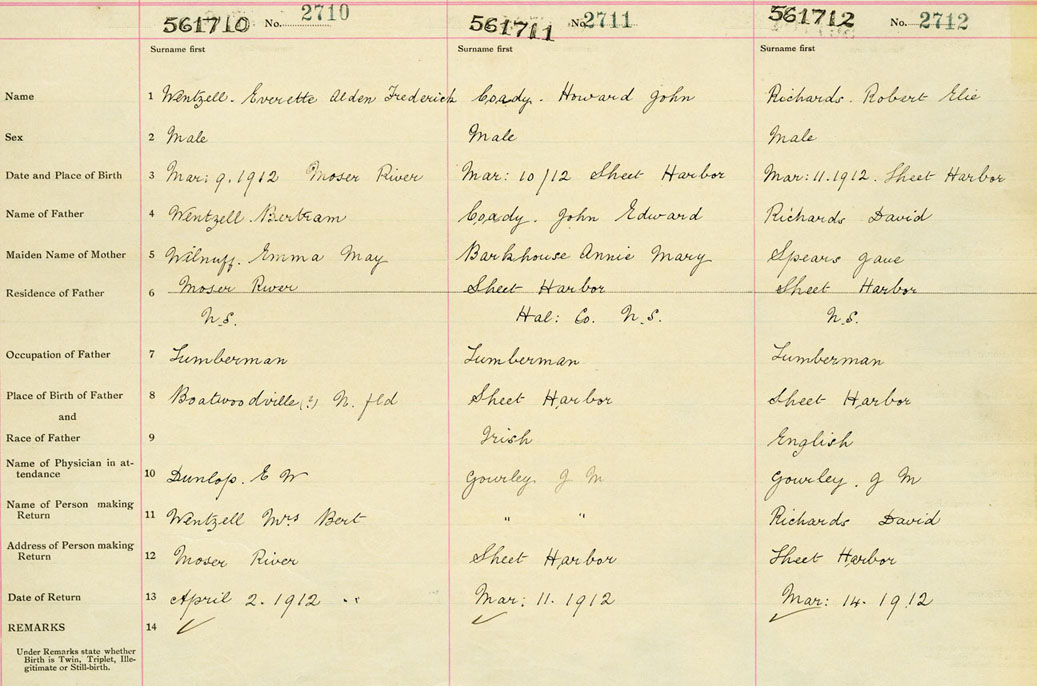 561710 No. 2710 561711 No. 2711 561712 No. 2712
Surname first Surname first Surname first
Name 1 Wentzell. Everette Alden Frederick Coady. Howard John Richards. Robert Elie
Sex 2 Male Male Male
Date and Place of Birth 3 Mar: 9. 1912 Moser River Mar: 10/12 Sheet Harbor Mar: 11. 1912. Sheet Harbor
Name of Father 4 Wentzell. Bertram Coady. John Edward Richards David
Maiden Name of Mother 5 Emma May Barkhouse Annie Mary Spears
Residence of Father 6 Moser River Sheet Harbor Sheet Harbor
N.S. Hal: Co. N.S. N.S.
Occupation of Father 7 Lumberman Lumberman Lumberman
Place of Birth of Father 8 Boatwoodville (?) N. fld Sheet Harbor Sheet Harbor
and
Race of Father 9 Irish English
Name of Physician in at-
tendance 10 Dunlop. E W Gourley. J M Gourley. J M
Name of Person making
Return 11 Wentzell Mrs Bert " " Richards David
Address of Person making
Return 12 Moser River Sheet Harbor Sheet Harbor
Date of Return 13 April 2. 1912 Mar: 11. 1912 Mar: 14. 1912
REMARKS 14
Under Remarks state whether
Birth is Twin, Triplet, Ille-
gitimate or Still-birth.